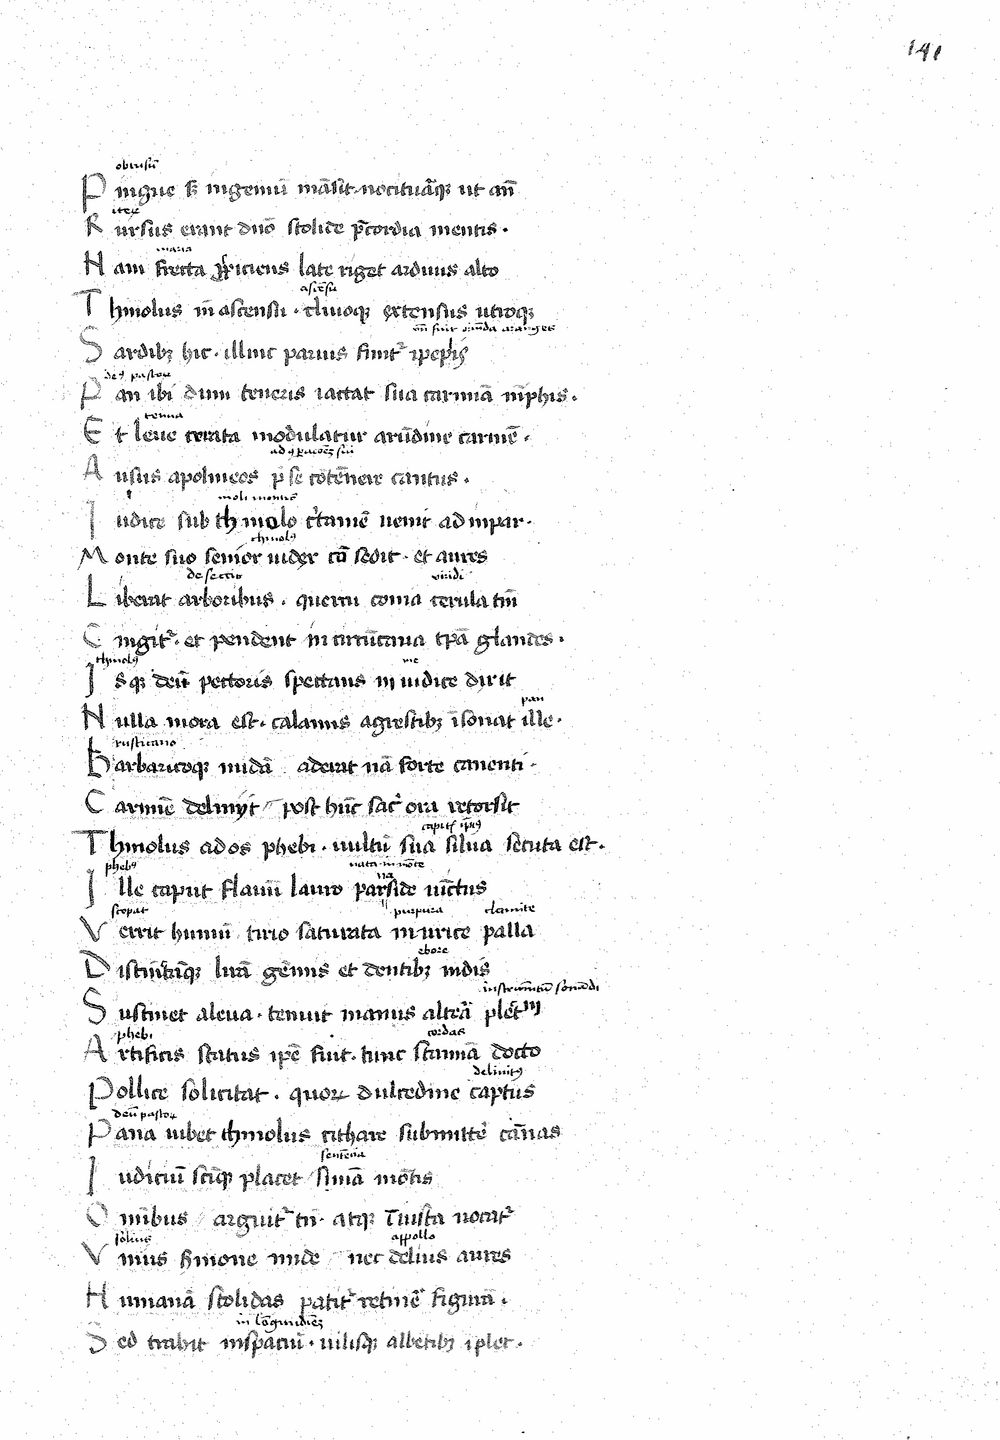 141
obtusũ
Pingue s; ingeniũ mãsit nocituãq; ut añ
iteꝝ
Rursus erant duo stolide p̃cordia mentis ·
maria
Nam freta p̱spiciens late riget arduus alto
ascẽsu
Thmolus in ascensu · cliuoq; extensus utroq;
Sardibꝫ hic · illinc paruis finit᷑
de9 pastoꝝ
Pan ibi dum teneris iactat sua carmiã nĩphis ·
tenua
Et leue cerata modulatur arũdine carmẽ ·
Ausus apolineos p̃ se cõtẽnere cantus ·
moti montis
Iudice sub thmolo c̃tamẽ uenit ad inpar ·
thmol9
Monte suo senior iudex cũ sedit · et aures
viridi
Liberat arboribus · quercu coma cerula tm̃
Cingit᷑ · et pendent in circũcaua tp̃ã glandes ·
thmol9
Isq; deũ pectoris spectans in iudice dixit
pan
Nulla mora est · calamis agrestibꝫ ĩsonat ille ·
rusticano
Barbaricoq; midã aderat nã forte canenti ·
Carmĩe delinijt / post hũc sac̃ ora retorsit
Thmolus ad os phebi · uultũ sua silua secuta est ·
pheb9
Ille caput flauũ lauro parnaside uĩctus
scopat purpura clamite
Verrit humũ tirio saturata murice palla
ebore
Distinctãq; lirã gẽmis et dentibꝫ indis
instrumẽtũ sonãdi
Sustinet a leua · tenuit manus altera plectrũ
phebi cordas
Artificis status ipẽ fuit · tunc stamiã docto
Pollice solicitat · quoꝝ dulcedine captus
deũ pastoꝝ
Pana iubet thmolus cithare submittẽ cãnas
sentẽtia
Iudiciũ sctĩq; placet simã mõtis
Omĩbus / arguit᷑ tñ · atq; ĩiusta uocat᷑
soli9
Vnius s̃mone mide / nec delius aures
appollo
Humanã stolidas patit᷑ retinẽ figurã ·
Sed trahit in spaciũ · uilisq; albẽtibꝫ iplet ·